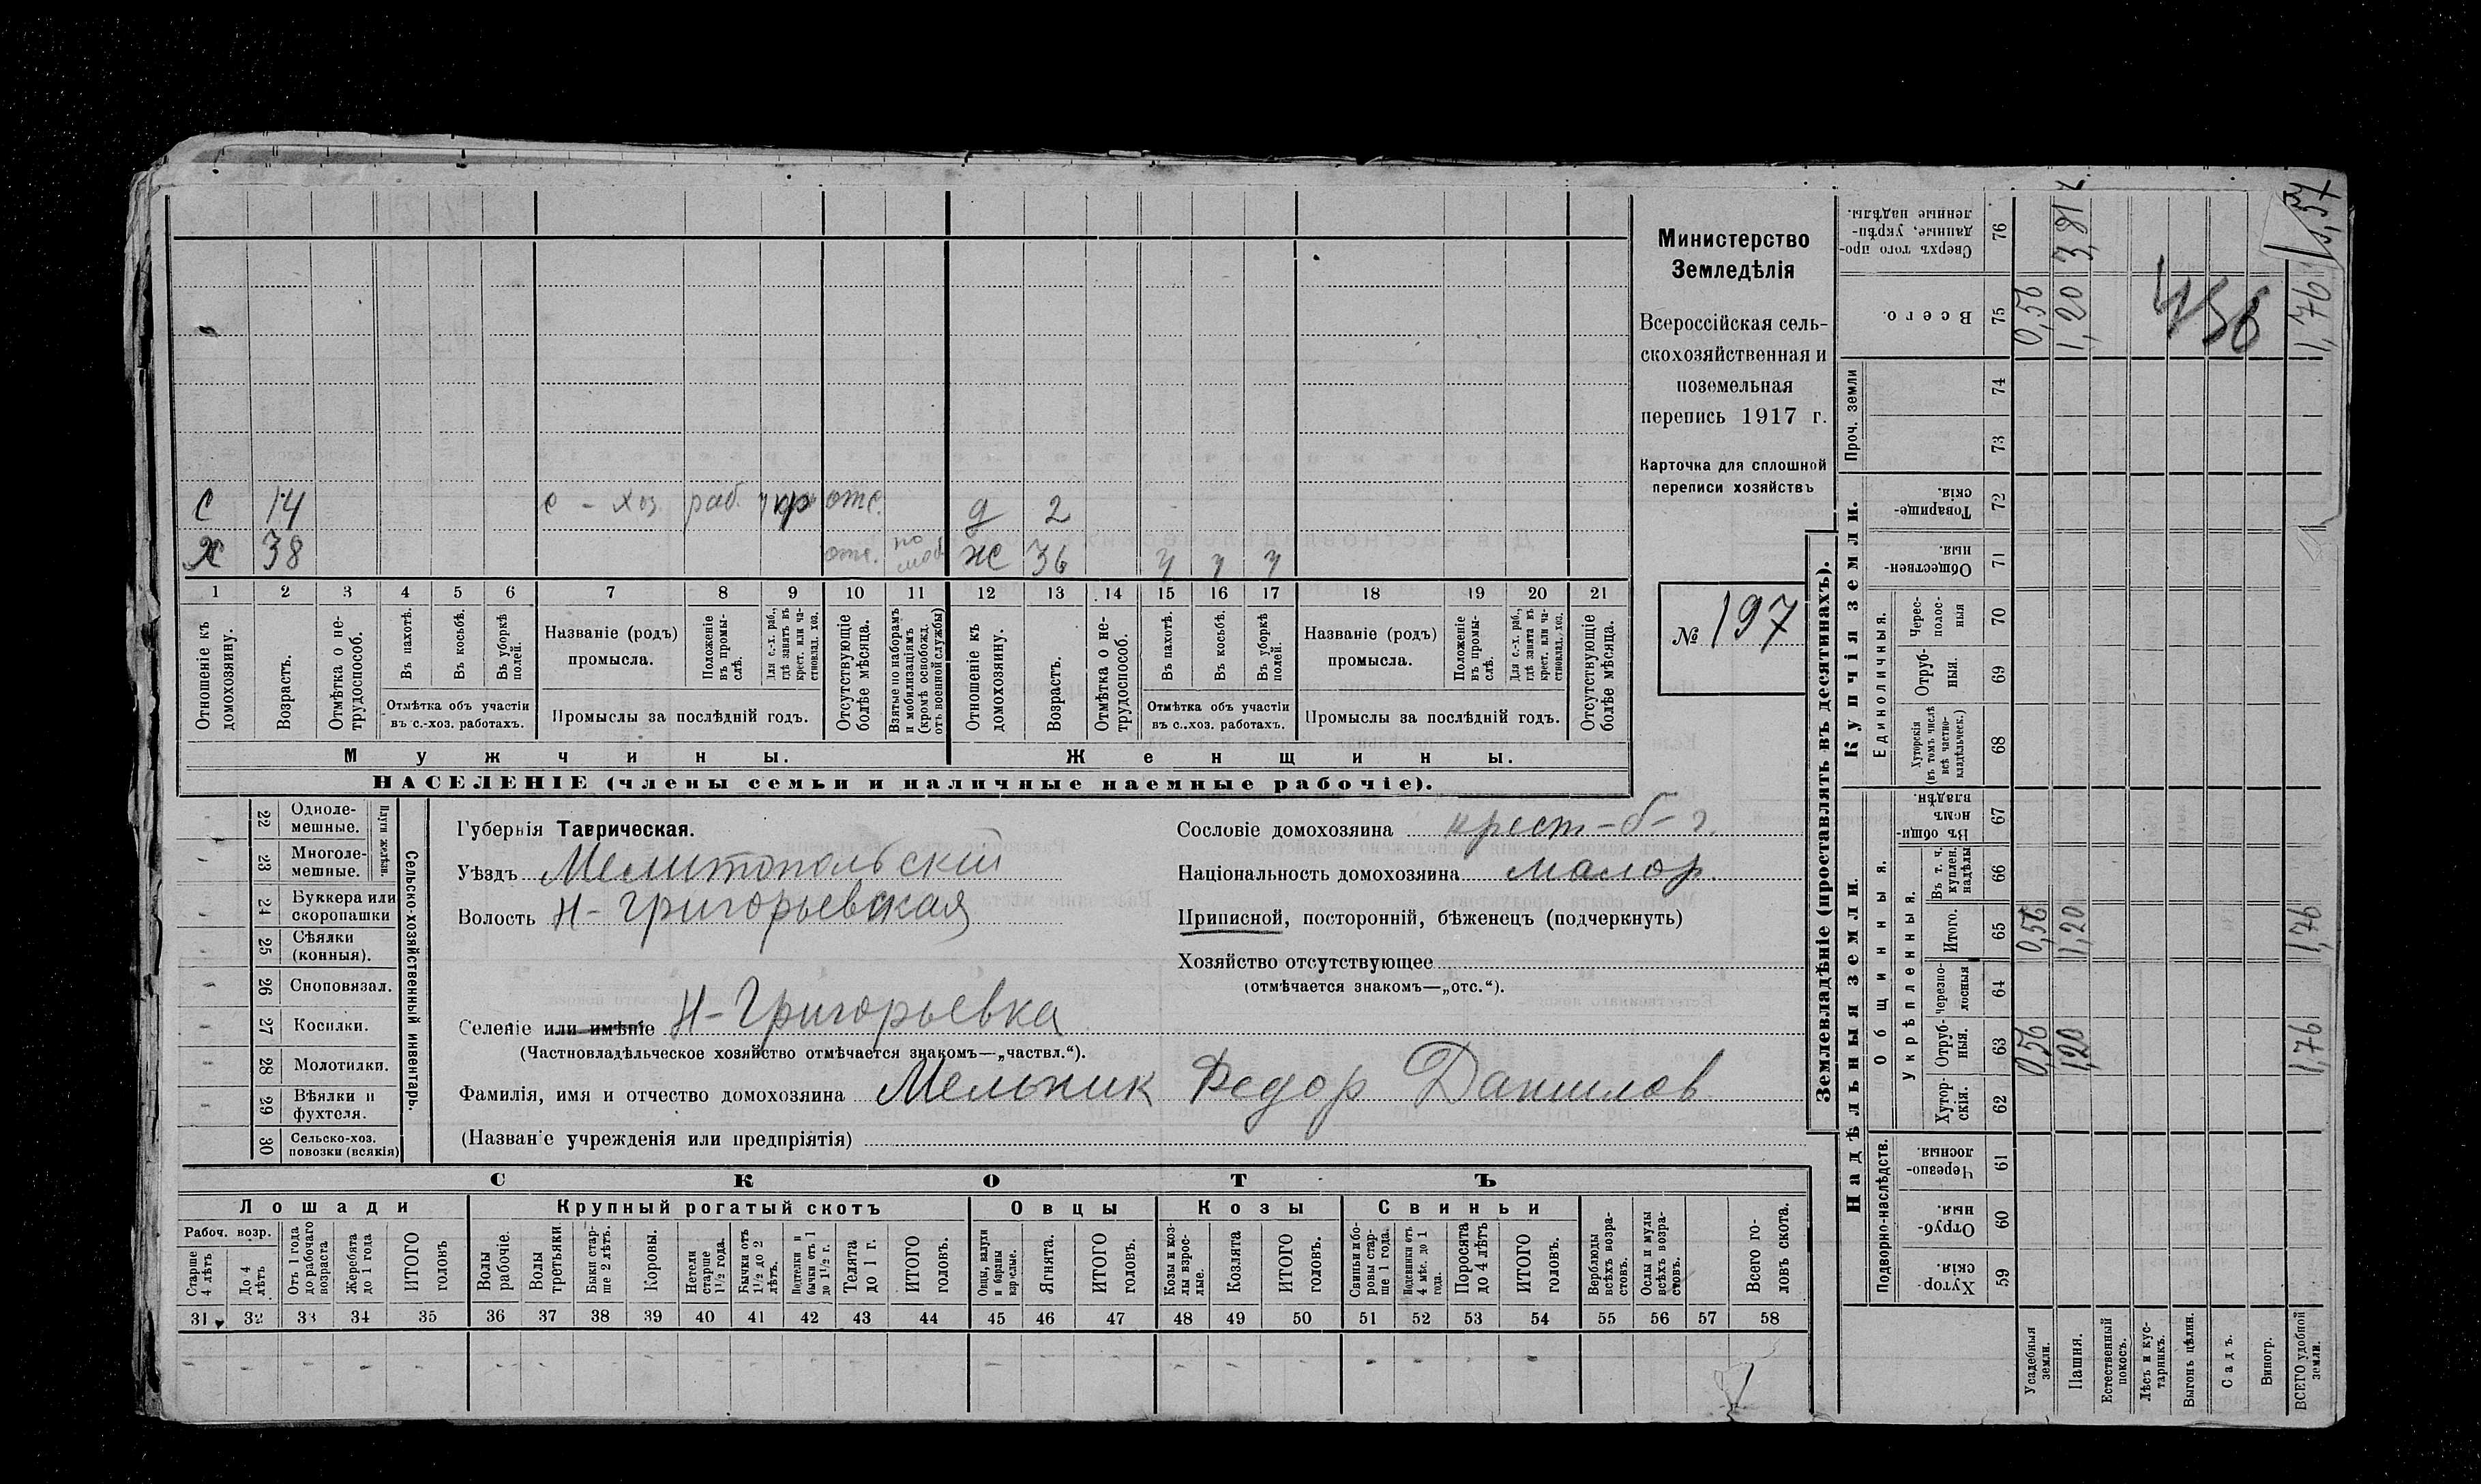 С 14 с - хоз раб. кр отс. д 2
Х 38 отс. по моб. ж 36 у у у
1 2 3 4 5 6 7 8 9 10 11 12 13 14 15 16 17 18 19 20 21
Отношеніе къ домохозяину.
Возрастъ.
Отмѣтка о не-
трудоспособ.
Въ пахотѣ.
Въ косьбѣ.
Въ уборкѣ
полей.
Отмѣтка объ участіи
въ с.-хоз. работахъ.
Названіе (родъ)
промысла.
Положеніе
въ промы-
слѣ.
Для с.-х. раб.,
гдѣ занятъ въ
крест. или ча-
стновлад. хоз.
Промыслы за послѣдній годъ.
Отсутствующіе
болѣе мѣсяца.
Взятые по наборамъ
и мобилизаціямъ
(кромѣ освобожд.
отъ военной службы)
Отношеніе къ
домохозяину.
Возрастъ.
Отмѣтка о не-
трудоспособ.
Въ пахотѣ.
Въ косьбѣ.
Въ уборкѣ
полей.
Отмѣтка объ участіи
въ с..хоз. работахъ.
Названіе (родъ)
промысла.
Положеніе
въ промы-
слѣ.
Для с.-х. раб.,
гдѣ занята въ
крест. или ча-
стновлад. хоз.
Промыслы за послѣдній годъ.
Отсутствующіе
болѣе мѣсяца.
Мужчины.
Женщины.
НАСЕЛЕНІЕ (члены семьи и наличные наемные рабочіе).
Министерство
Земледѣлія
Всероссійская сель-
скохозяйственная и
поземельная
перепись 1917 г.
Карточка для сплошной
переписи хозяйствъ
№ 197
22 Одноле-
мешные.
23 Многоле-
мешные.
Плуги желѣзн.
24 Буккера или
скоропашки
25 Сѣялки
(конныя).
26 Сноповязал.
27 Косилки.
28 Молотилки.
29 Вѣялки и
фухтеля.
30 Сельско-хоз.
повозки (всякія)
Сельско-хозяйственный инвентарь.
Губернія Таврическая.
Уѣздъ Мелитопольскій
Волость Н-Григорьевская
Селеніе или имѣніе Н-Григорьевка
(Частновладѣльческое хозяйство отмѣчается знакомъ—„частвл.“).
Фамилія, имя и отчество домохозяина Мельник Федор Данилов
(Названіе учрежденія или предпріятія)
Сословіе домохозяина крест-б-г.
Національность домохозяина малор.
Приписной, посторонній, бѣженецъ (подчеркнуть)
Хозяйство отсутствующее
(отмѣчается знакомъ—„отс.“).
СКОТЪ
Лошади
Крупный рогатый скотъ
Овцы
Козы
Свиньи
Рабоч. возр.
Старше
4 лѣтъ
До 4
лѣтъ
Отъ 1 года
до рабочаго
возраста
Жеребята
до 1 года
ИТОГО
головъ
Волы
рабочіе.
Волы
третьяки
Быки стар-
ше 2 лѣтъ.
Коровы.
Нетели
старше
1½ года.
Бычки отъ
1½ до 2
лѣтъ.
Подтелки и
бычки отъ 1
до 1½ г.
Телята
до 1 г.
ИТОГО
головъ.
Овцы, валухи
и бараны
взрослые.
Ягнята.
ИТОГО
головъ.
Козы и коз-
лы взрос-
лые.
Козлята
ИТОГО
головъ.
Свиньи и бо-
ровы стар-
ше 1 года.
Подсвинки отъ
4 мѣс. до 1
года.
Поросята
до 4 лѣтъ
ИТОГО
головъ.
Верблюды
всѣхъ возра-
стовъ.
Ослы и мулы
всѣхъ возра-
стовъ.
Всего го-
ловъ скота.
31 32 33 34 35 36 37 38 39 40 41 42 43 44 45 46 47 48 49 50 51 52 53 54 55 56 57 58
Землевладѣніе (проставлять въ десятинахъ).
Надѣльныя земли.
Купчія земли.
Проч. земли
Подворно-наслѣдств.
Общинныя.
Укрѣпленныя.
Единоличныя.
Сверхъ того про-
данные, укрѣп-
ленные надѣлы. 76 3,81
Всего. 75 0,56 1,20 1,76
74
73
Товарище-
скія. 72
Обществен-
ныя. 71
Черес-
полос-
ныя 70
Отруб-
ныя. 69
Хуторскія
(въ томъ числѣ
всѣ частно-
владѣльческ.) 68
Въ общи-
номъ
владѣн. 67
Въ т. ч.
куплен.
надѣлы 66
Итого. 65 0,56 1,20 1,76
черезпо-
лосныя 64
Отруб-
ныя. 63 0,56 1,20 1,76
Хутор-
скія. 62
Черезпо-
лосныя. 61
Отруб-
ныя. 60
Хутор-
скія. 59
Усадебныя
земли.
Пашня.
Естественный
покосъ.
Лѣсъ и кус-
тарникъ.
Выгонъ цѣлин.
Садъ.
Виногр.
ВСЕГО удобной
земли.
436